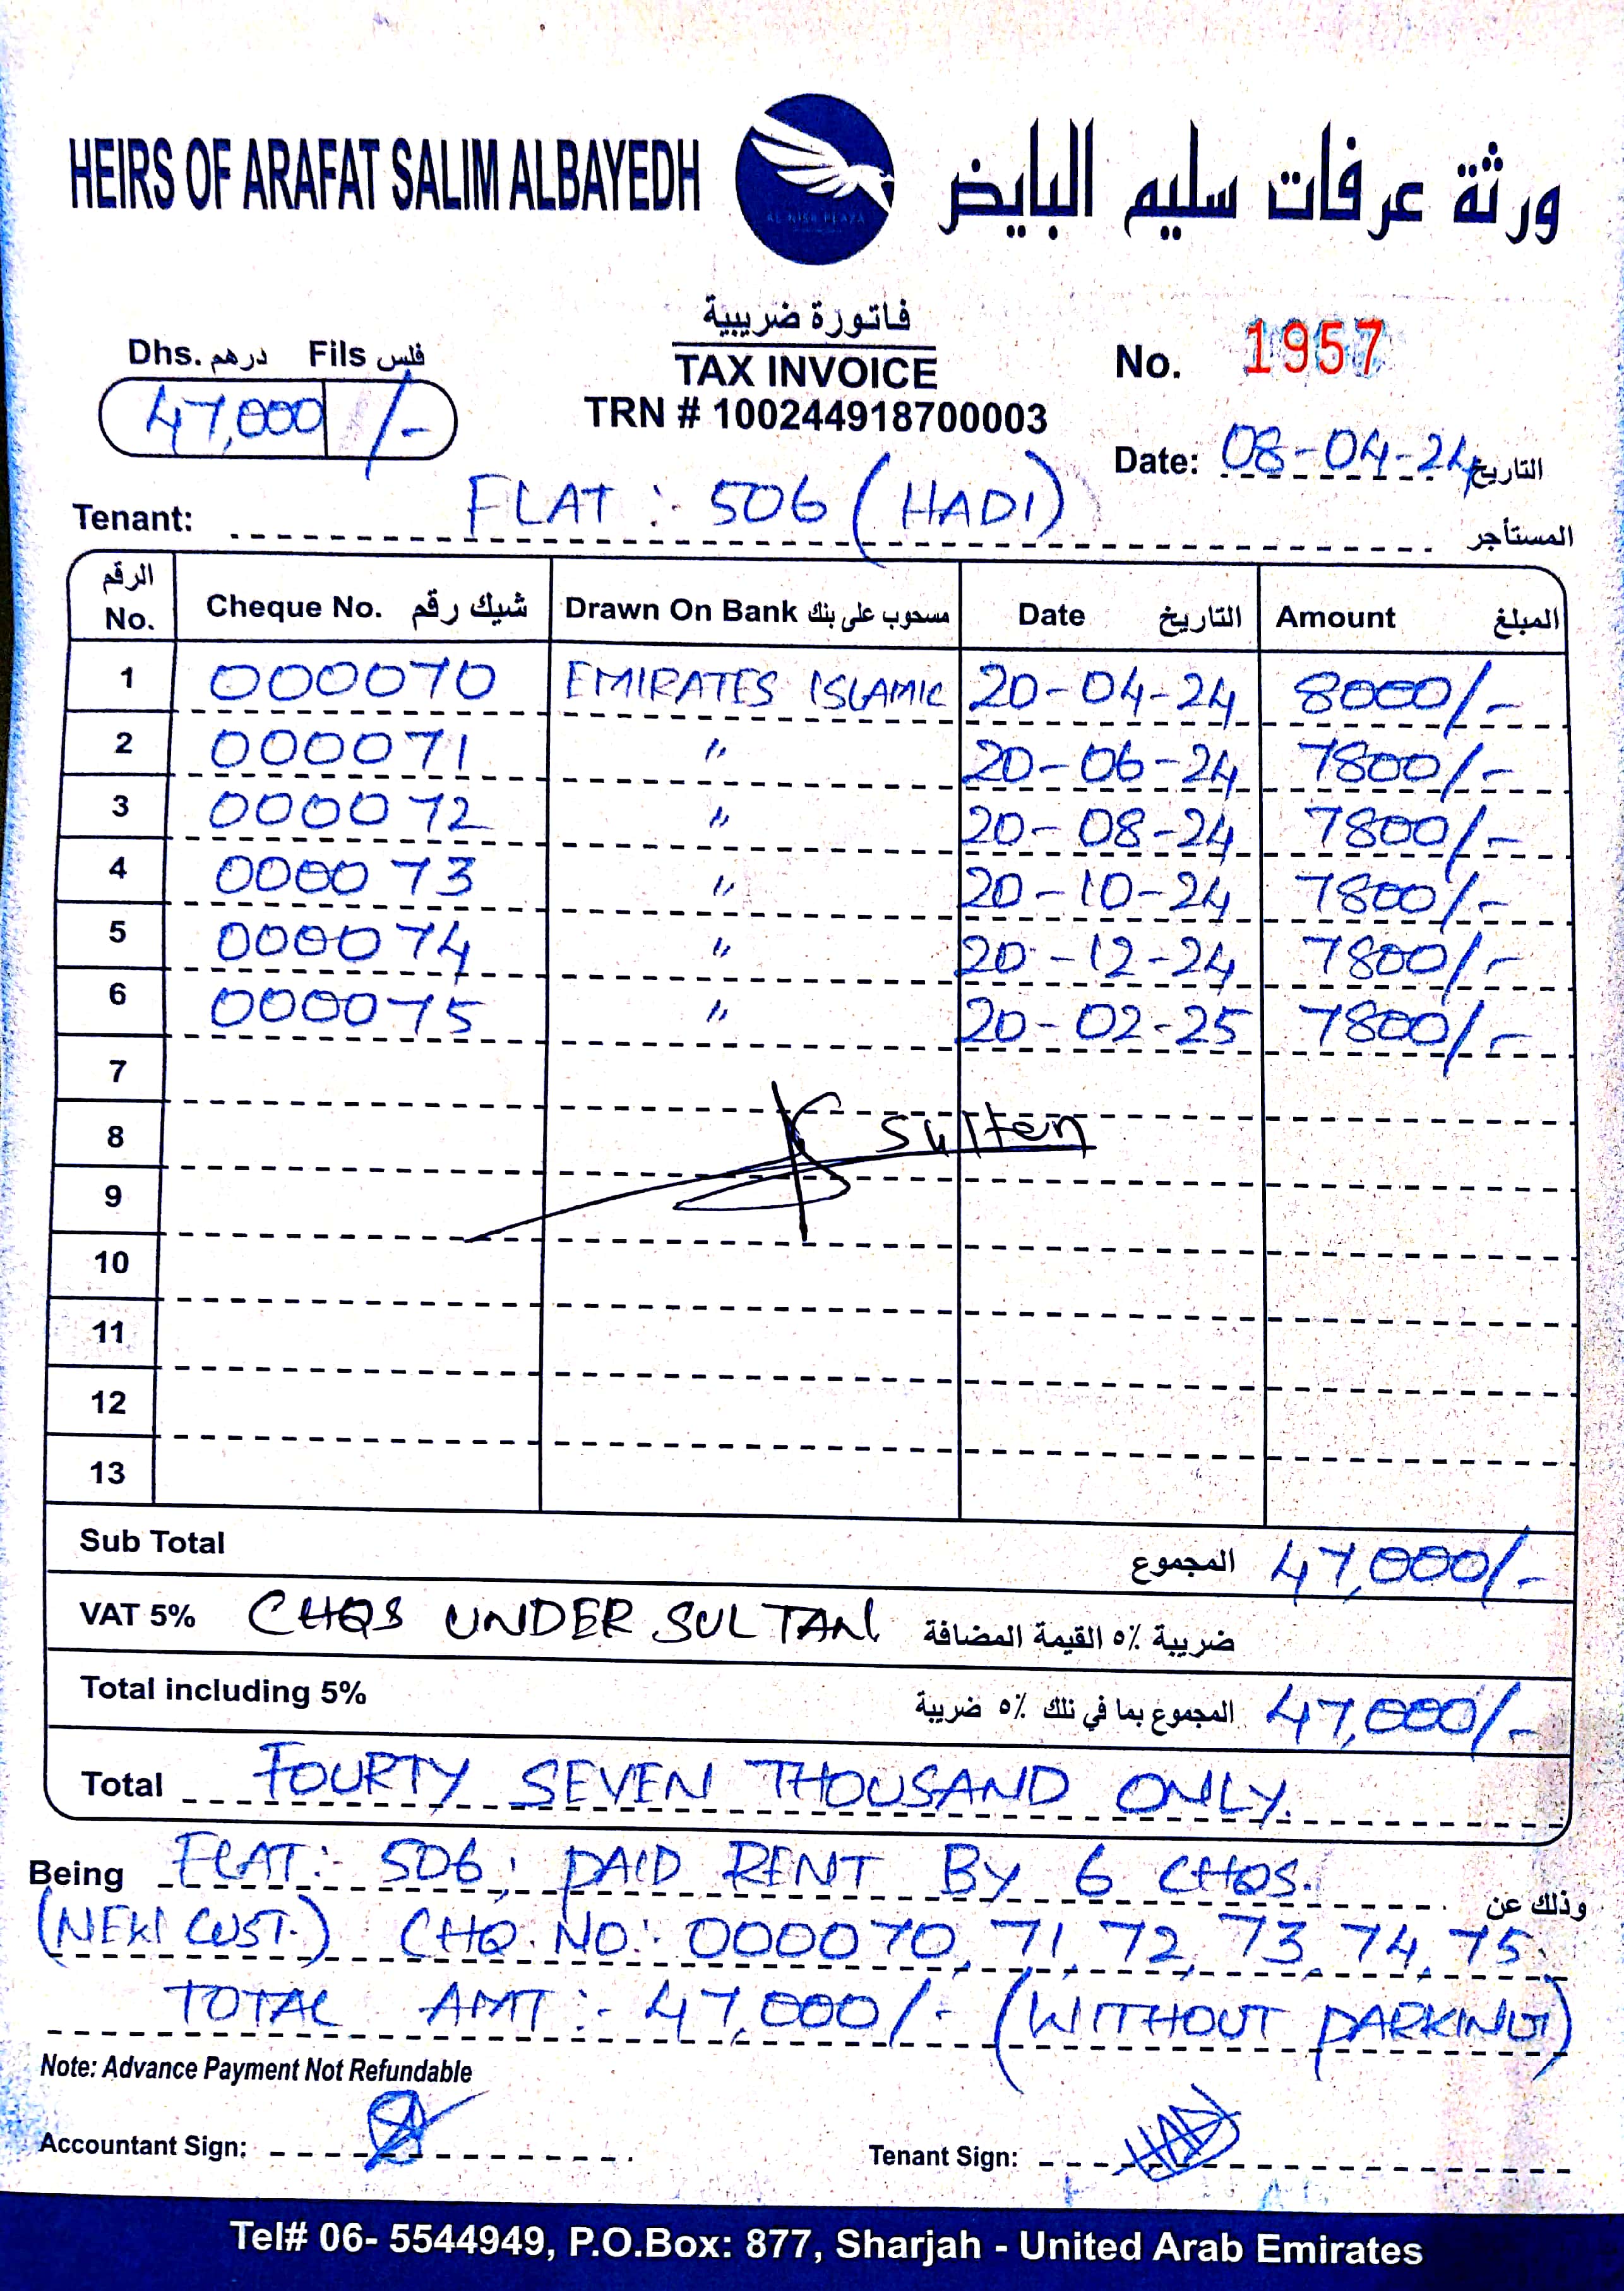 HEIRS OF ARAFAT SALIM ALBAYEDH ورثة عرفات سليم البايض
AL NISR PLAZA
فاتورة ضريبية
TAX INVOICE
TRN # 100244918700003
Dhs. درهم Fils فلس
47,000 /-
No. 1957
Date: 08-04-24 التاريخ
Tenant: FLAT :- 506 (HADI) المستأجر
الرقم No. Cheque No. شيك رقم Drawn On Bank مسحوب على بنك Date التاريخ Amount المبلغ
1 000070 EMIRATES ISLAMIC 20-04-24 8000/-
2 000071 " 20-06-24 7800/-
3 000072 " 20-08-24 7800/-
4 000073 " 20-10-24 7800/-
5 000074 " 20-12-24 7800/-
6 000075 " 20-02-25 7800/-
7
8 Sulten
9
10
11
12
13
Sub Total المجموع 47,000/-
VAT 5% CHQS UNDER SULTAN ضريبة ٥٪ القيمة المضافة
Total including 5% المجموع بما في ذلك ٥٪ ضريبة 47,000/-
Total FOURTY SEVEN THOUSAND ONLY.
Being FLAT:- 506, PAID RENT BY 6 CHQS. وذلك عن
CUST.) CHQ. NO:- 000070, 71, 72, 73, 74, 75.
TOTAL AMT :- 47,000/- (WITHOUT PARKING)
Note: Advance Payment Not Refundable
Accountant Sign: Tenant Sign: HADI
Tel# 06- 5544949, P.O.Box: 877, Sharjah - United Arab Emirates